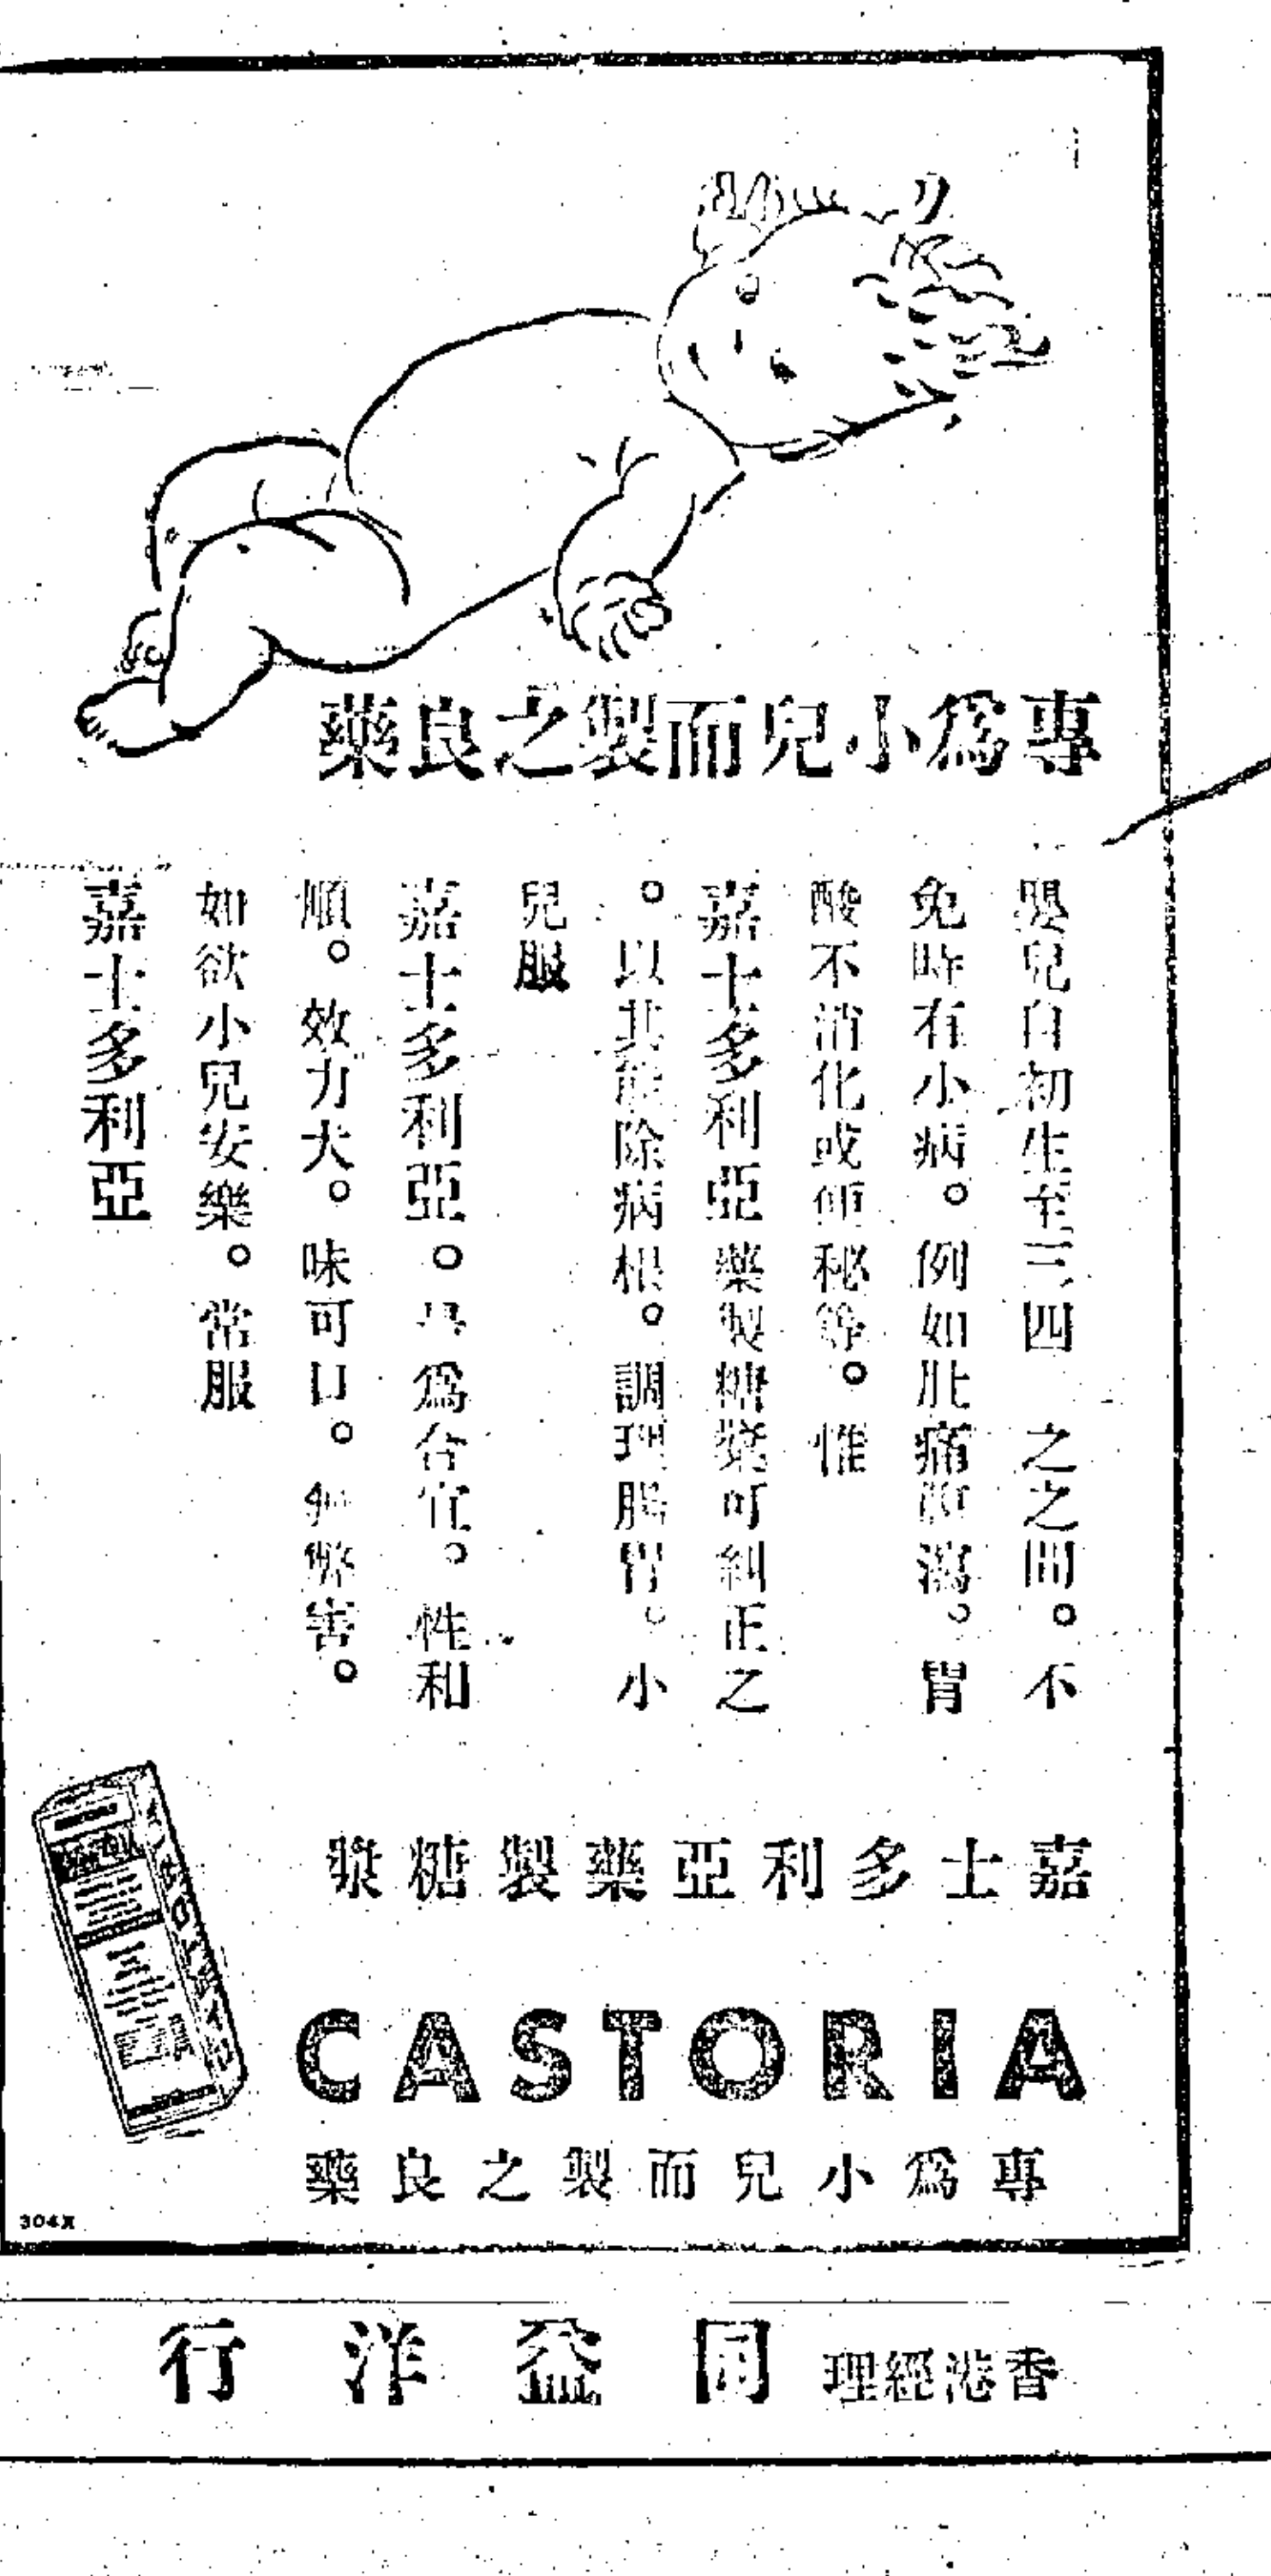 專爲小兒而製之良藥
嬰兒自初生至三四 之之間。不
免時有小病。例如肚痛 瀉。胃
酸不消化或便秘等。惟
嘉士多利亞藥製糖漿可糾正之
。以其能除病根。調理腸胃。小
兒服
嘉士多利亞。 爲合宜。性和
順。效力大。味可口。 弊害。
如欲小兒安樂。常服
嘉士多利亞
嘉士多利亞藥製糖漿
CASTORIA
專爲小兒而製之良藥
304X
香港經理 同益洋行